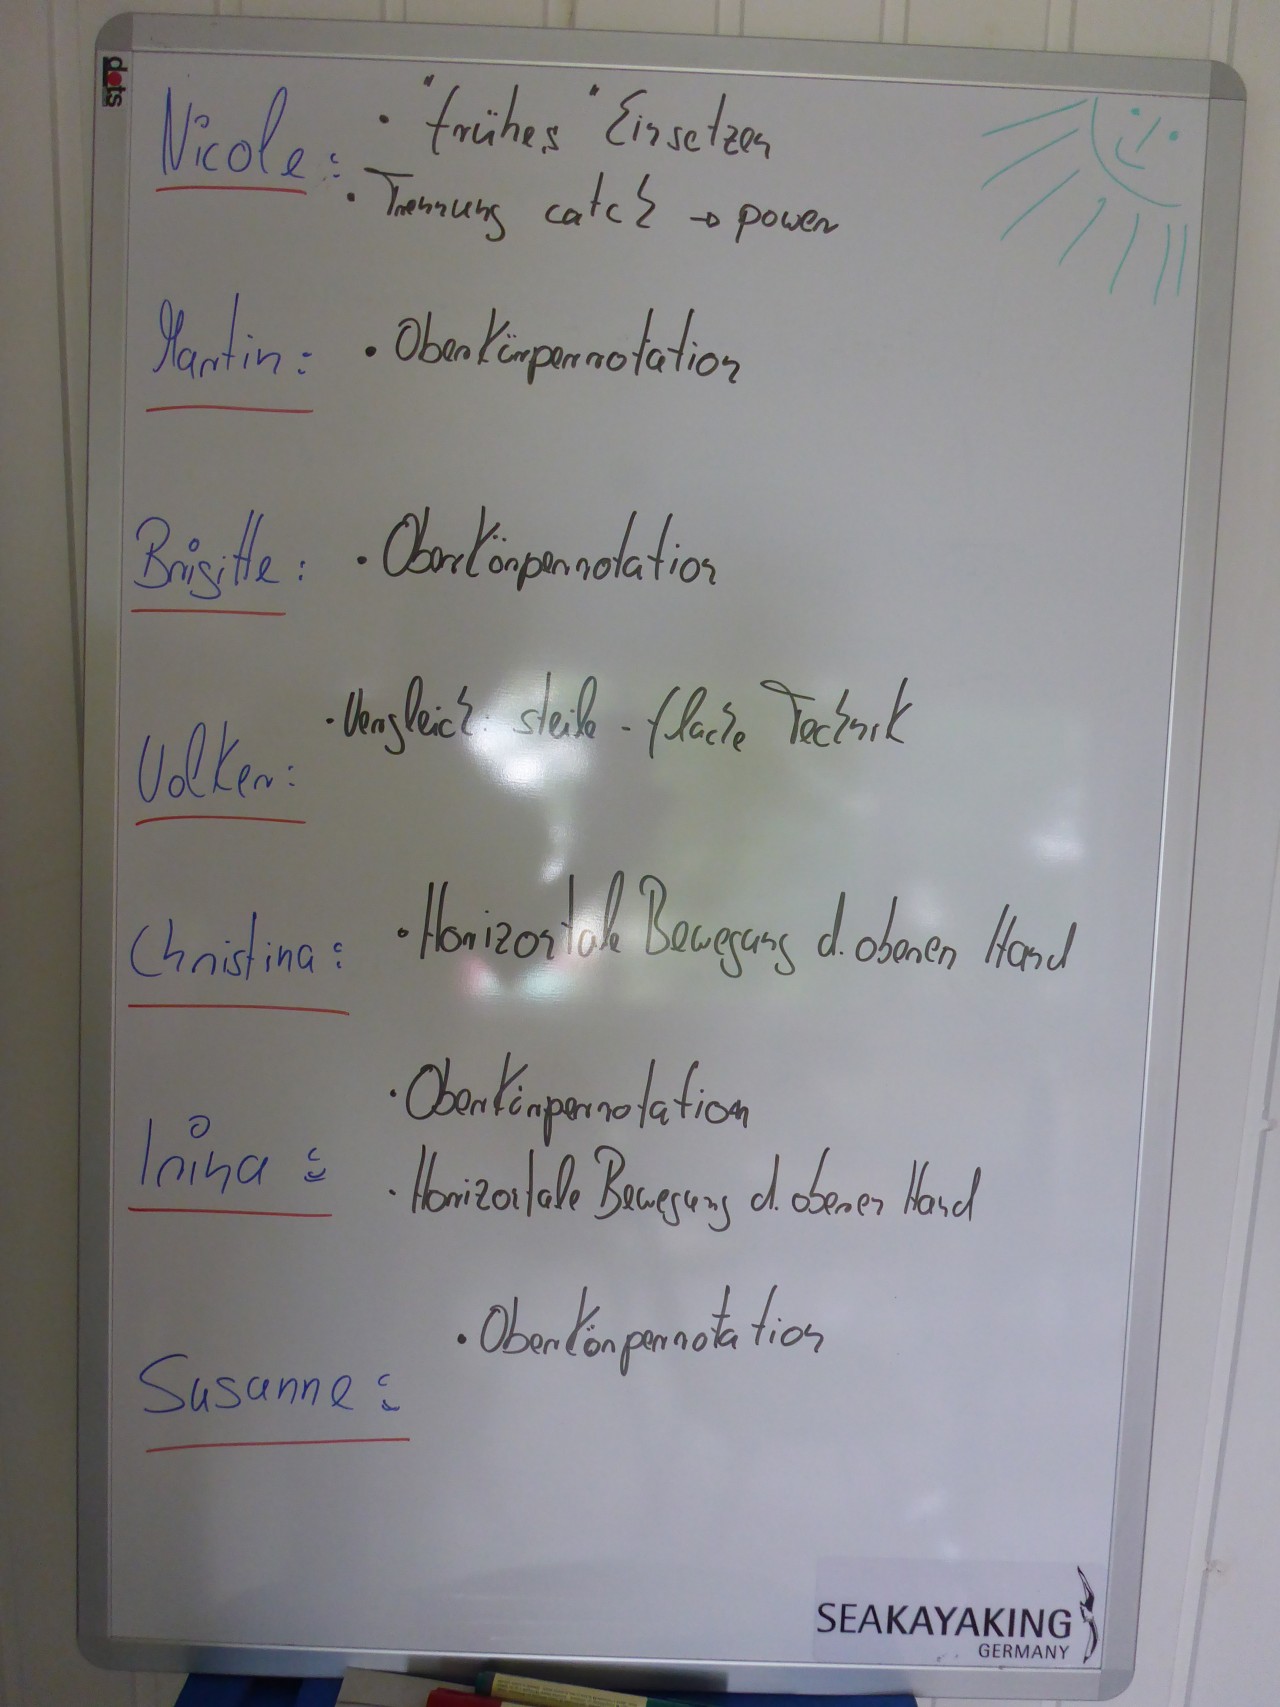 dots
Nicole:
• "frühes" Einsetzen
• Trennung catch → power
Martin: • Oberkörperrotation
Brigitte: • Oberkörperrotation
Volker: • Vergleich: steile - flache Technik
Christina: • Horizontale Bewegung d. oberen Hand
Irina:
• Oberkörperrotation
• Horizontale Bewegung d. oberen Hand
Susanne: • Oberkörperrotation
SEAKAYAKING
GERMANY